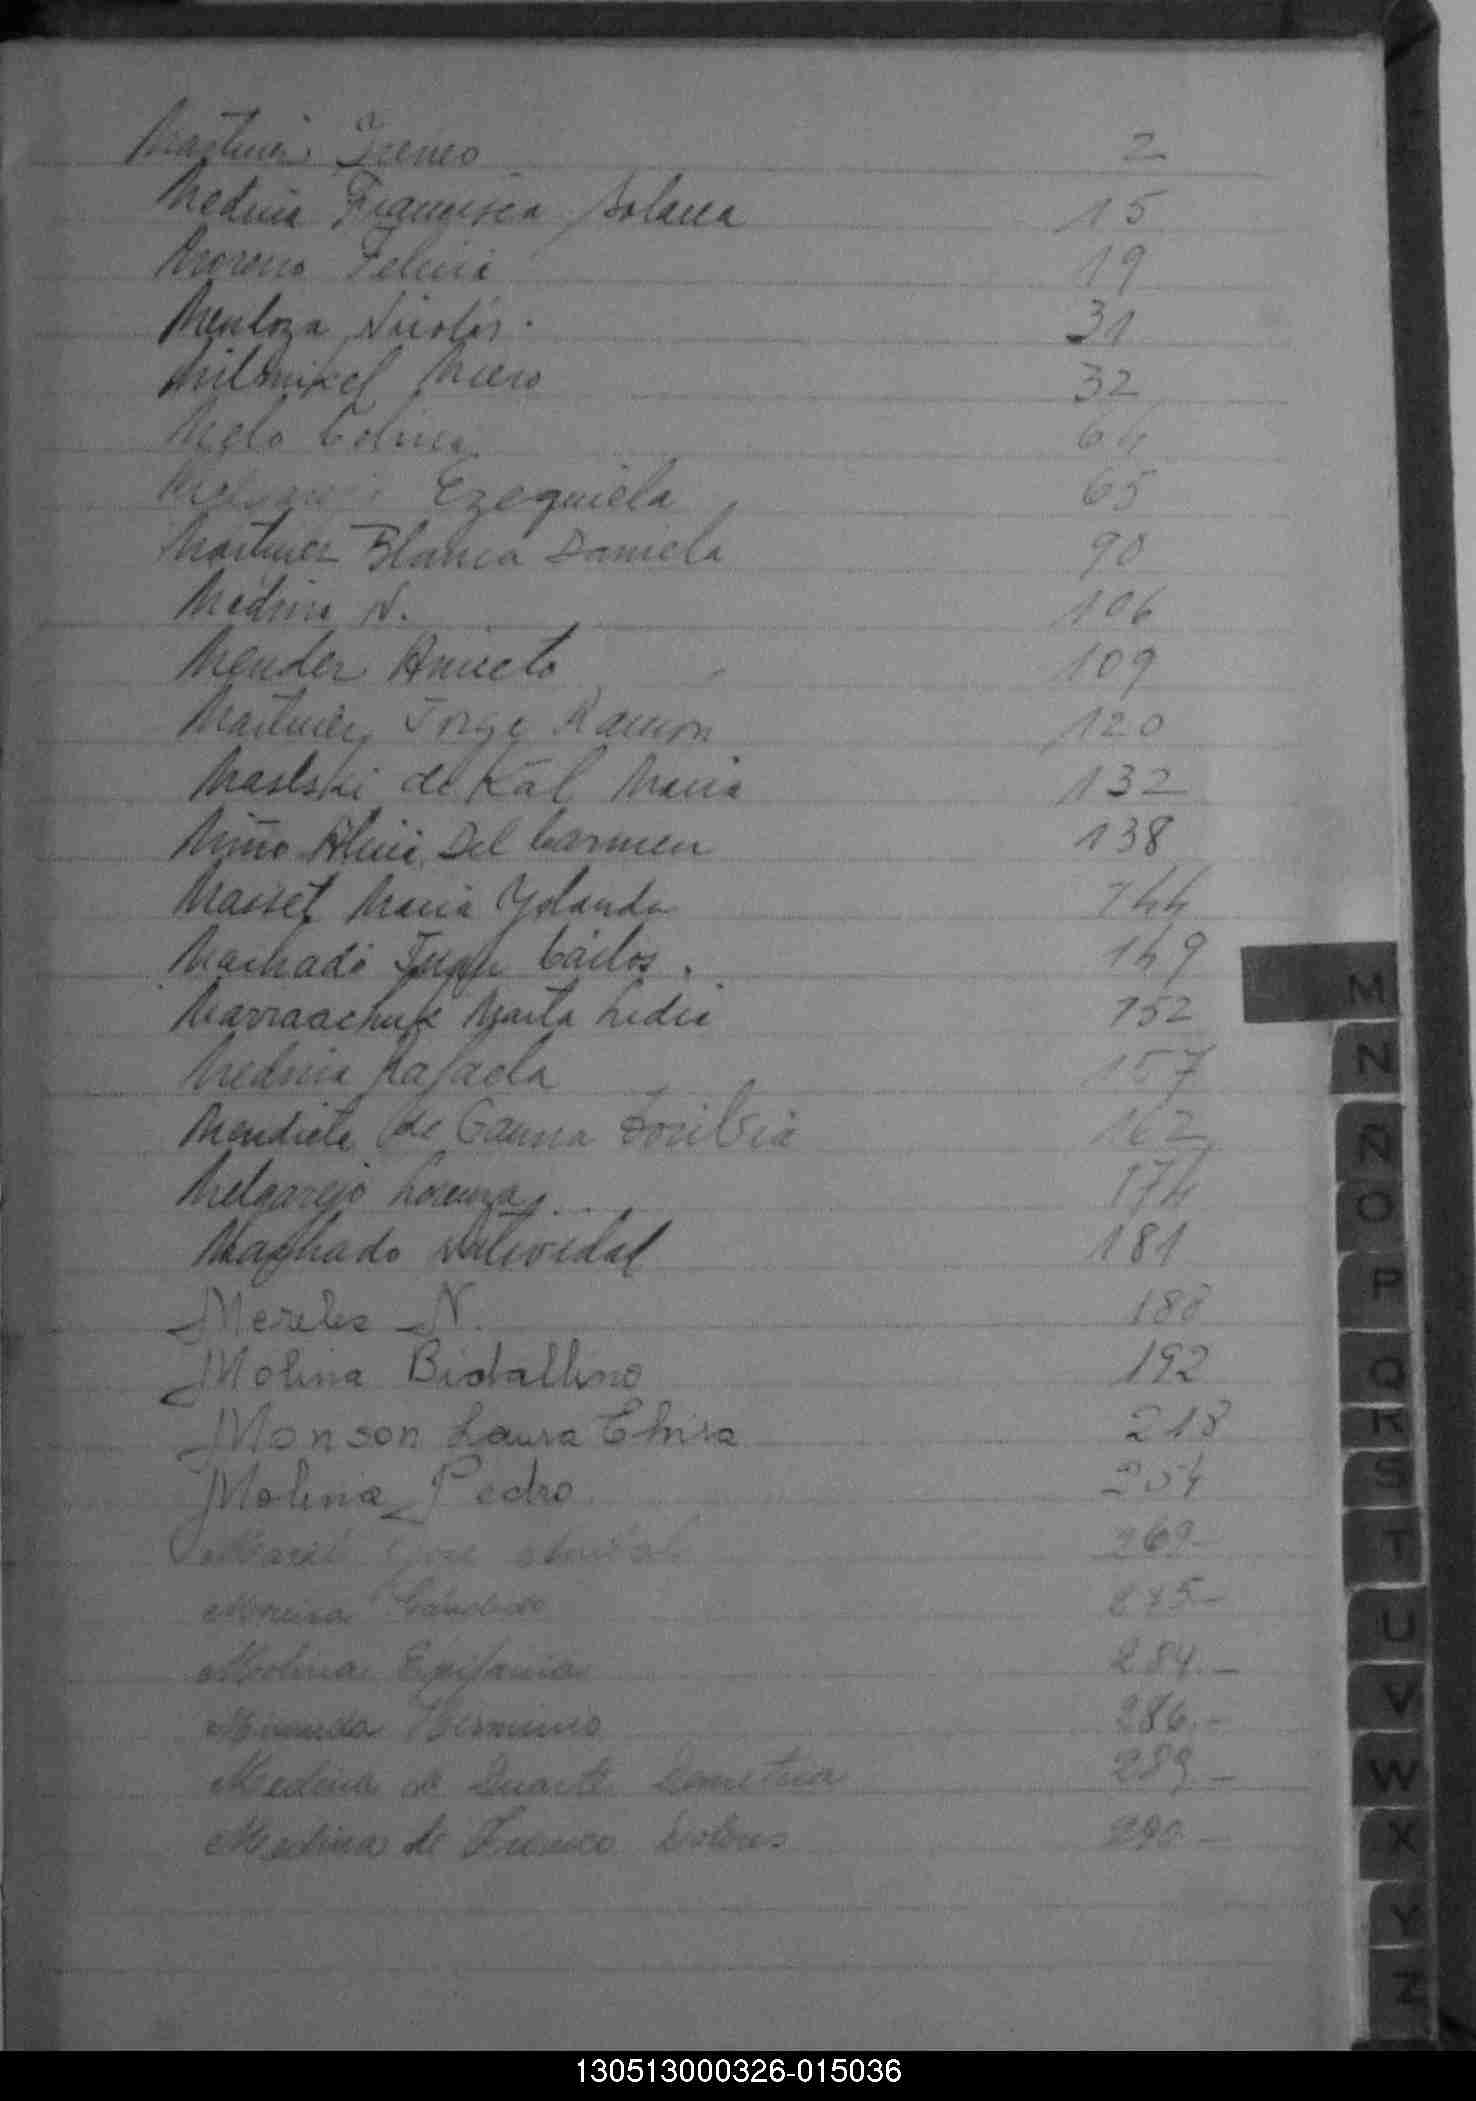 Martinez Ireneo 2
Medina Francisca Solana 15
Moreno Felicia 19
Mendoza Nicolás 31
32
Melo Celina 64
Ezequiela 65
Martinez Blanca Daniela 90
Medina N. 106
Mendez Aniceto 109
Martinez Jorge Ramón 120
de Kal Maria 132
Miño Alicia Del Carmen 138
Maria Yolanda 144
Machado Juan Carlos. 149
Marta Lidia 152
Medina Rafaela 157
Mendieta de Gauna Toribia 162
Melgarejo Lorenza. 174
Machado Natividad 181
Mereles N. 188
Molina 192
Monson Laura Elvira 218
Molina Pedro 254
José 269-
Moreira Candido 275-
Molina Epifania 284.-
Miranda Herminio 286.-
Medina de Duarte Demetria 289.-
Medina de Franco Dolores 290.-
M
N
Ñ
O
P
Q
R
S
T
U
V
W
X
Y
Z
130513000326-015036